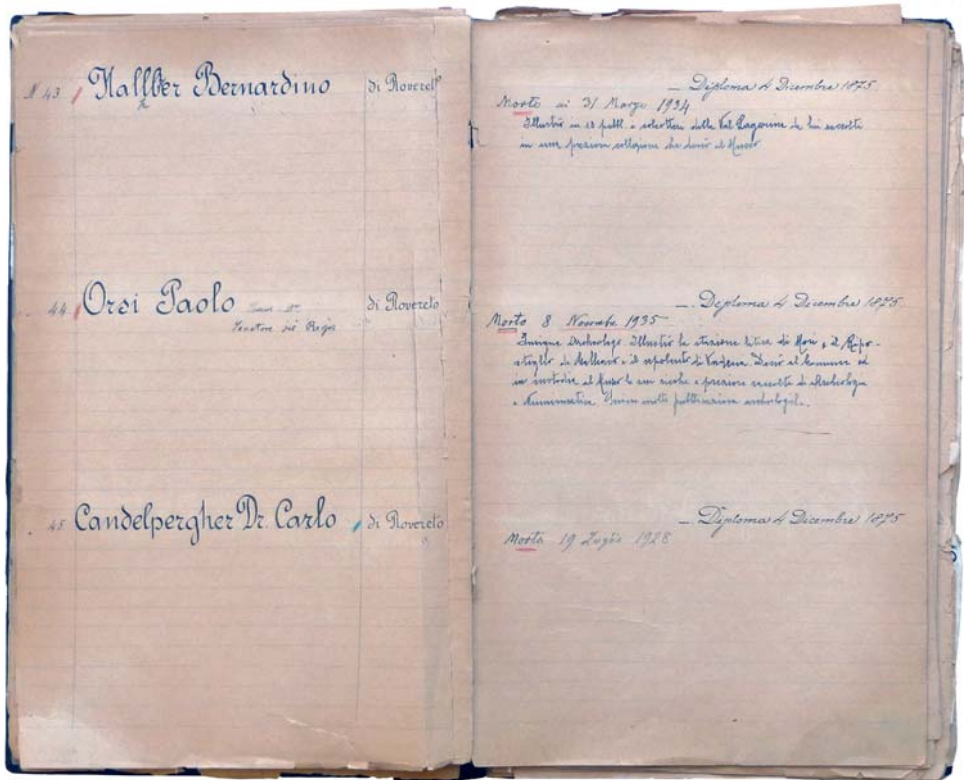 N. 43 Halbherr Bernardino di Rovereto
— Diploma 4 Dicembre 1875
Morto ai 31 Marzo 1934
Illustrò in 18 pubbl. i coleotteri della Val Lagarina da lui raccolti
in una preziosa collezione che donò al Museo
44 Orsi Paolo di Rovereto
Senatore del Regno
— Diploma 4 Dicembre 1875
Morto 8 Novembre 1935
Insigne Archeologo. Illustrò la stazione litica di Mori, il Ripo-
stiglio di e il sepolcreto di Vadena. Donò al Comune ed
in custodia al Museo la sua ricche e preziose raccolte di Archeologia
e Numismatica. molte pubblicazioni
45 Candelpergher Dr. Carlo di Rovereto
— Diploma 4 Dicembre 1875
Morto 19 Luglio 1928